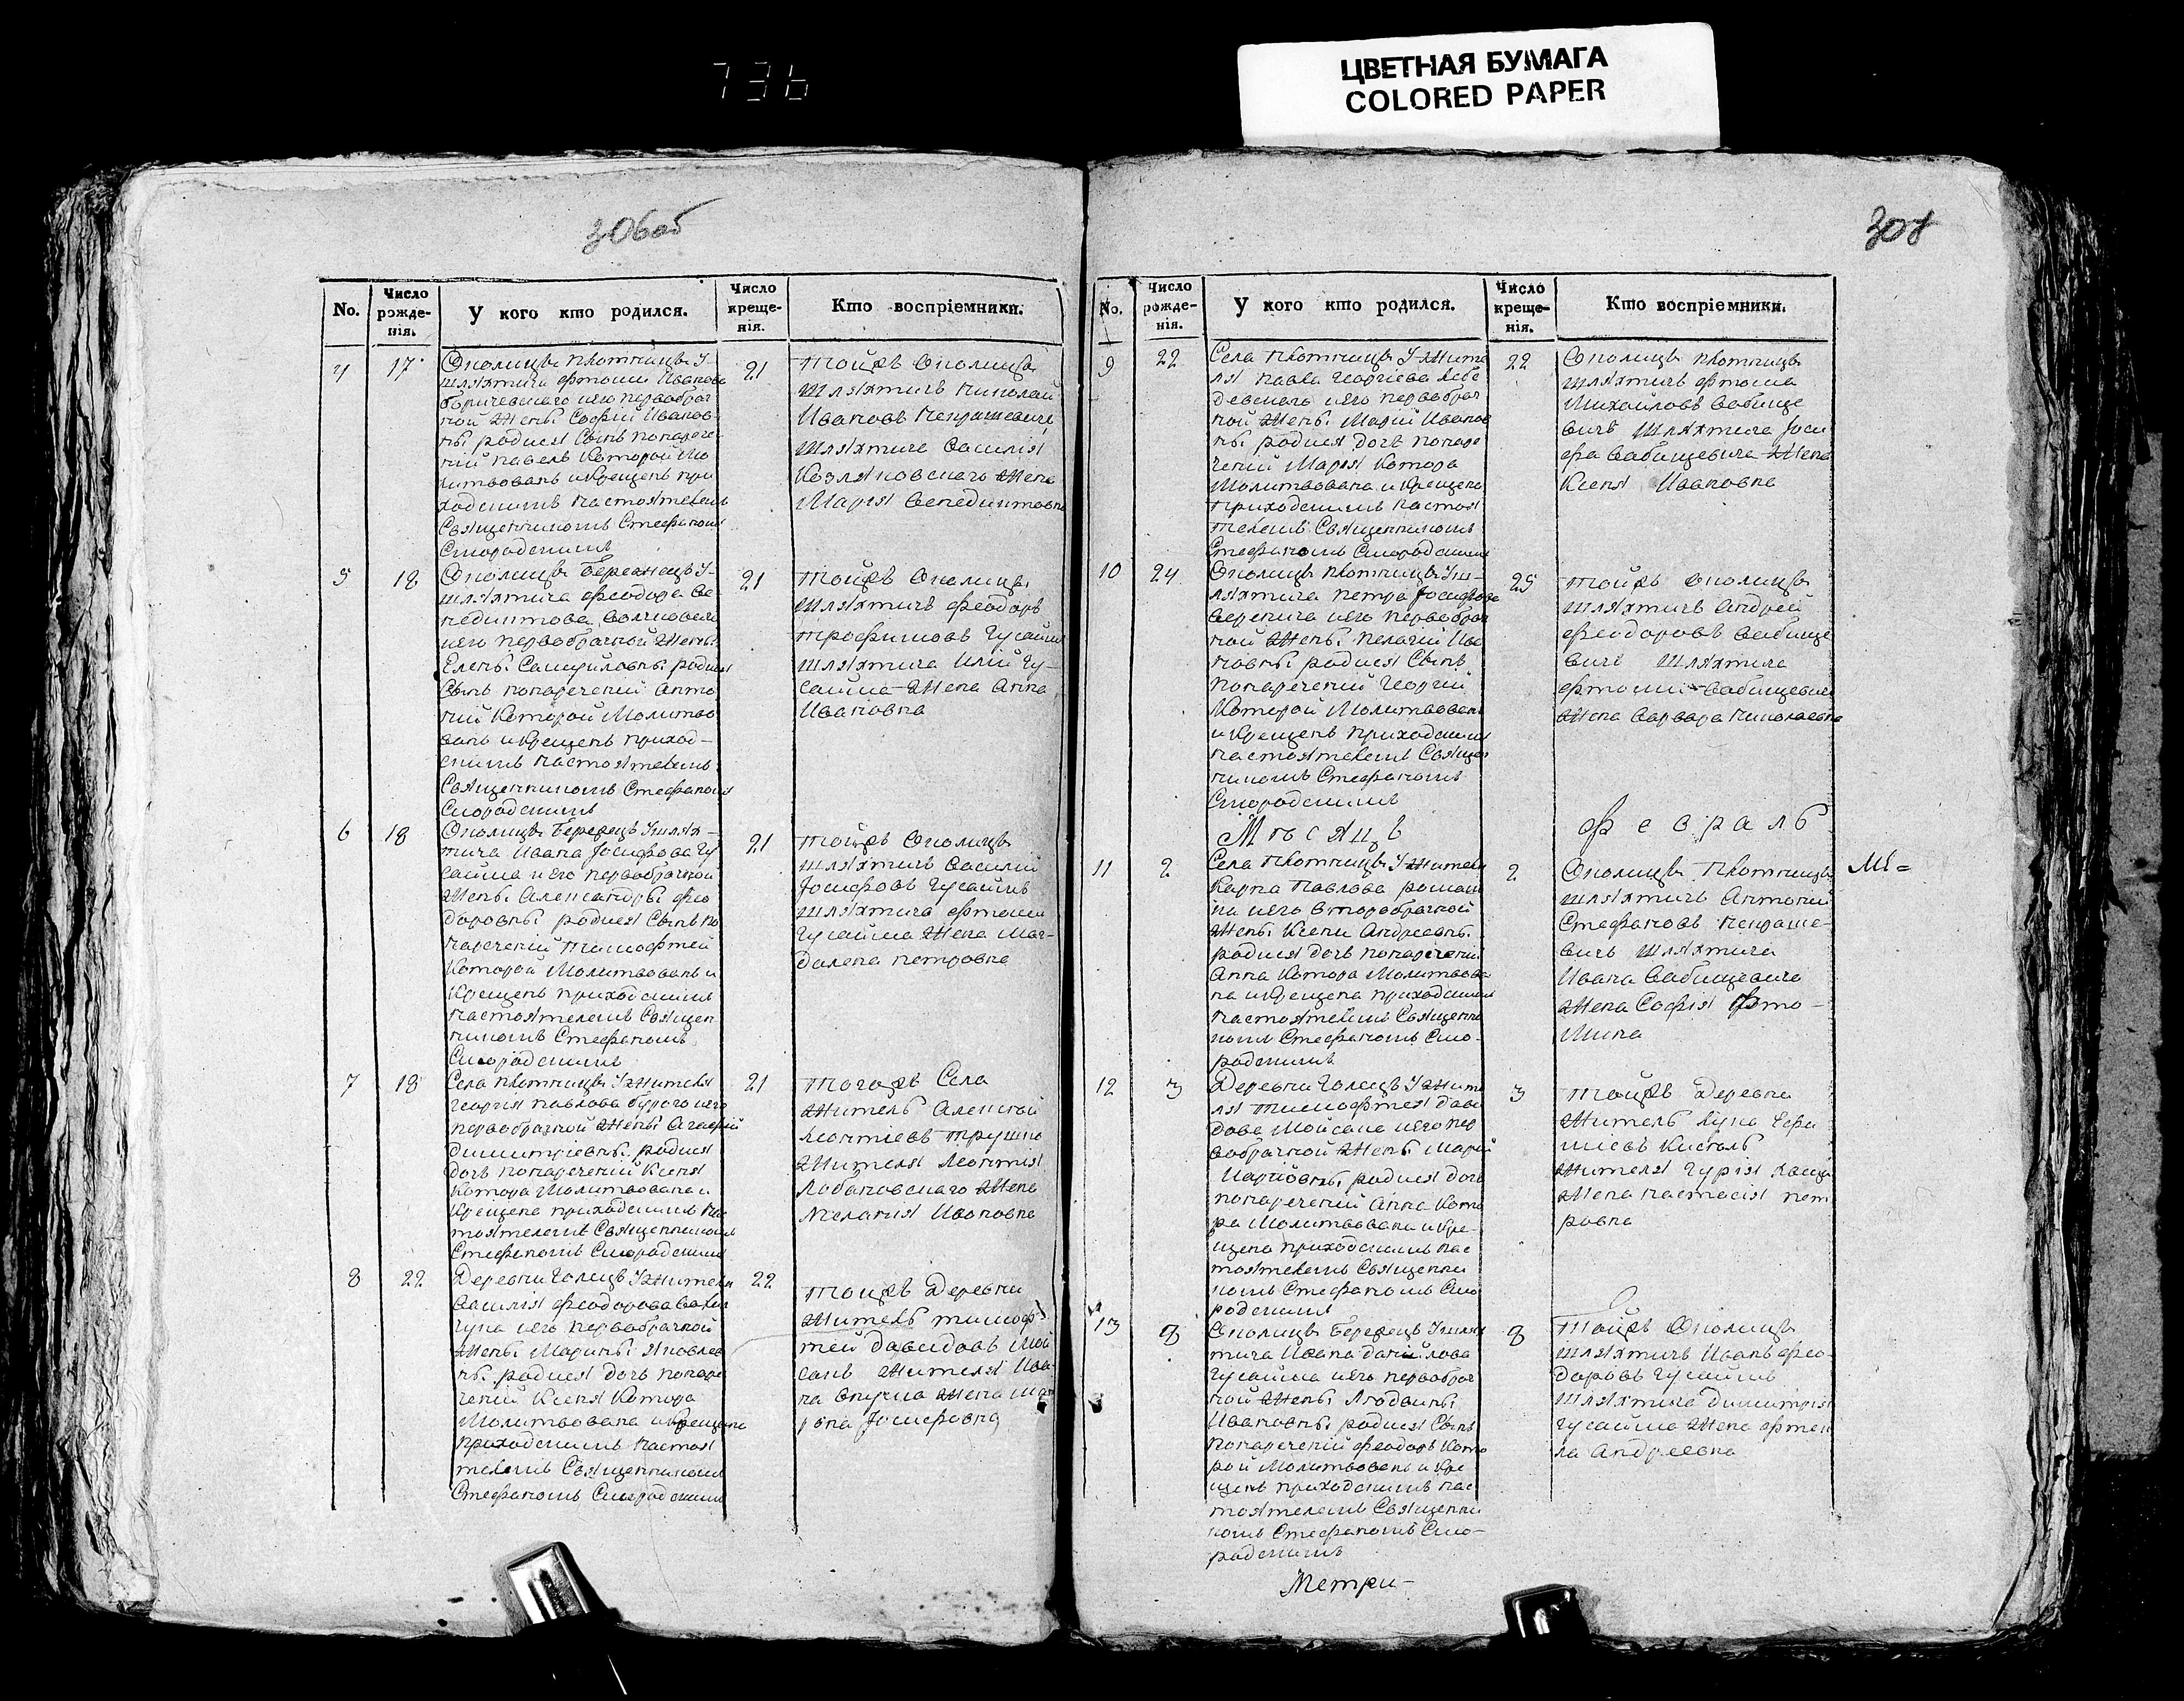 736
ЦВЕТНАЯ БУМАГА
COLORED PAPER
306об
307
No.
Число рожденія.
У кого кто родился.
Число крещенія.
Кто воспріемники.
4
17
Околицы Плотницы У
шляхтича Фтомы Иванова
его первобрач
ной жены Софіи Иванов
ны родился Сынъ нонарече
ній Павелъ Которой Мо
литвованъ и Крещенъ при
ходскимъ настоятелемъ
Священникомъ Стефаномъ
Смородскимъ
21
тойжъ Околицы
шляхтичъ Николай
Ивановъ
шляхтича Василія
Козляковскаго жена
Марія Венедиктовна
5
18
Околицы Бережецъ У
шляхтича Феодора Ве
недиктова
его первобрачной жены
Елены Самуйловны родился
Сынъ нонареченій Анто
ній Которой Молитво
ванъ и Крещенъ приход-
скимъ настоятелемъ
Священникомъ Стефаномъ
Смородскимъ
21
тойжъ Околицы
шляхтичъ Феодоръ
Трофимовъ Гусаимъ
шляхтича Иліи Гу-
саима жена Анна
Ивановна
6
18
Околицы Бережецъ У шлях-
тича Ивана Іосифова Гу
саима и его первобрачной
жены Александры Фео
доровны родился Сынъ но
нареченій Тимофтей
Которой Молитвованъ и
Крещенъ приходскимъ
настоятелемъ Священ
никомъ Стефаномъ
Смородскимъ
21
тойжъ Околицы
шляхтичъ Василій
Іосифовъ Гусаимъ
шляхтича Фтомы
Гусаима жена Маг-
далена Петровна
7
18
Села Плотницы У жителя
Георгія Павлова его
первобрачной жены Агафіи
Димитріевны родился
дочь нонареченій Ксеня
Котора Молитвована и
Крещена приходскимъ нас
тоятелемъ Священникомъ
Стефаномъ Смородскимъ
21
тогожъ Села
житель Алексей
Леонтіевъ
жителя Леонтія
Лобановскаго жена
Меланія Ивановна
8
22
Деревни Голецъ У жителя
Василія Феодорова
его первобрачной
жены Марины Яковлев
ны родился дочь нонаре
ченій Ксеня Котора
Молитвована и Крещена
приходскимъ настоя
телемъ Священникомъ
Стефаномъ Смородскимъ
22
тойжъ Деревни
житель тимоф-
тей давидовъ Мой
сакъ жителя Ива
на жена
Іосифовна
No.
Число рожденія.
У кого кто родился.
Число крещенія.
Кто воспріемники.
9
22
Села Плотницы У жите
ля Павла Георгіева Лебе
девскаго и его первобрач
ной жены Маріи Иванов
ны родился дочь нонаре
ченій Марія Котора
Молитвована и Крещена
приходскимъ настоя
телемъ Священникомъ
Стефаномъ Смородскимъ
22
Околицы Плотницы
шляхтичъ Фтома
Михайловъ Вабище
вичъ шляхтича Іоси
фа Вабищевича жена
Ксеня Ивановна
10
24
Околицы Плотницы У ш-
ляхтича Петра Іосифова
Веренича и его первобрач
ной жены Пелагіи Ива
новны родился Сынъ
нонареченій Георгій
Которой Молитвованъ
и Крещенъ приходскимъ
настоятелемъ Священ
никомъ Стефаномъ
Смородскимъ
25
тойжъ Околицы
шляхтичъ Андрей
Феодоровъ Вабище
вичъ шляхтича
Фтомы Вабищевича
жена Варвара Николаевна
Мѣсяцъ Февраль
11
2
Села Плотницы У жителя
Карпа Павлова роман
на и его второбрачной
жены Ксени Андреевны
родился дочь нонареченій
Анна Котора Молитвова
на и Крещена приходскимъ
настоятелемъ Священни
комъ Стефаномъ Смо-
родскимъ
2
Околицы Плотницы
шляхтичъ Антоній
Стефановъ Некраше-
вичъ шляхтича
Ивана Вабищевича
жена Софія Фто-
мина
12
3
Деревни Голецъ У жите
ля тимофтея дави
дова Мойсака и его пер
вобрачной жены Маріи
родился дочь
нонареченій Анна Кото
ра Молитвована и Кре-
щена приходскимъ нас
тоятелемъ Священни
комъ Стефаномъ Смо
родскимъ
3
тойжъ Деревни
житель Лука
жителя Гурія
жена Настасія Пет
ровна
13
8
Околицы Бережецъ У шлях
тича Ивана Данійлова
Гусайма и его первобрач
ной жены Людвины
Ивановны родился Сынъ
нонареченій Феодоръ Кото
рой Молитвованъ и Кре
щенъ приходскимъ нас
тоятелемъ Священни
комъ Стефаномъ Смо-
родскимъ
8
тойжъ Околицы
шляхтичъ Иванъ Фео-
доровъ Гусаимъ
шляхтича Димитрія
Гусайма жена Фтек
ла Андреевна
Метри-